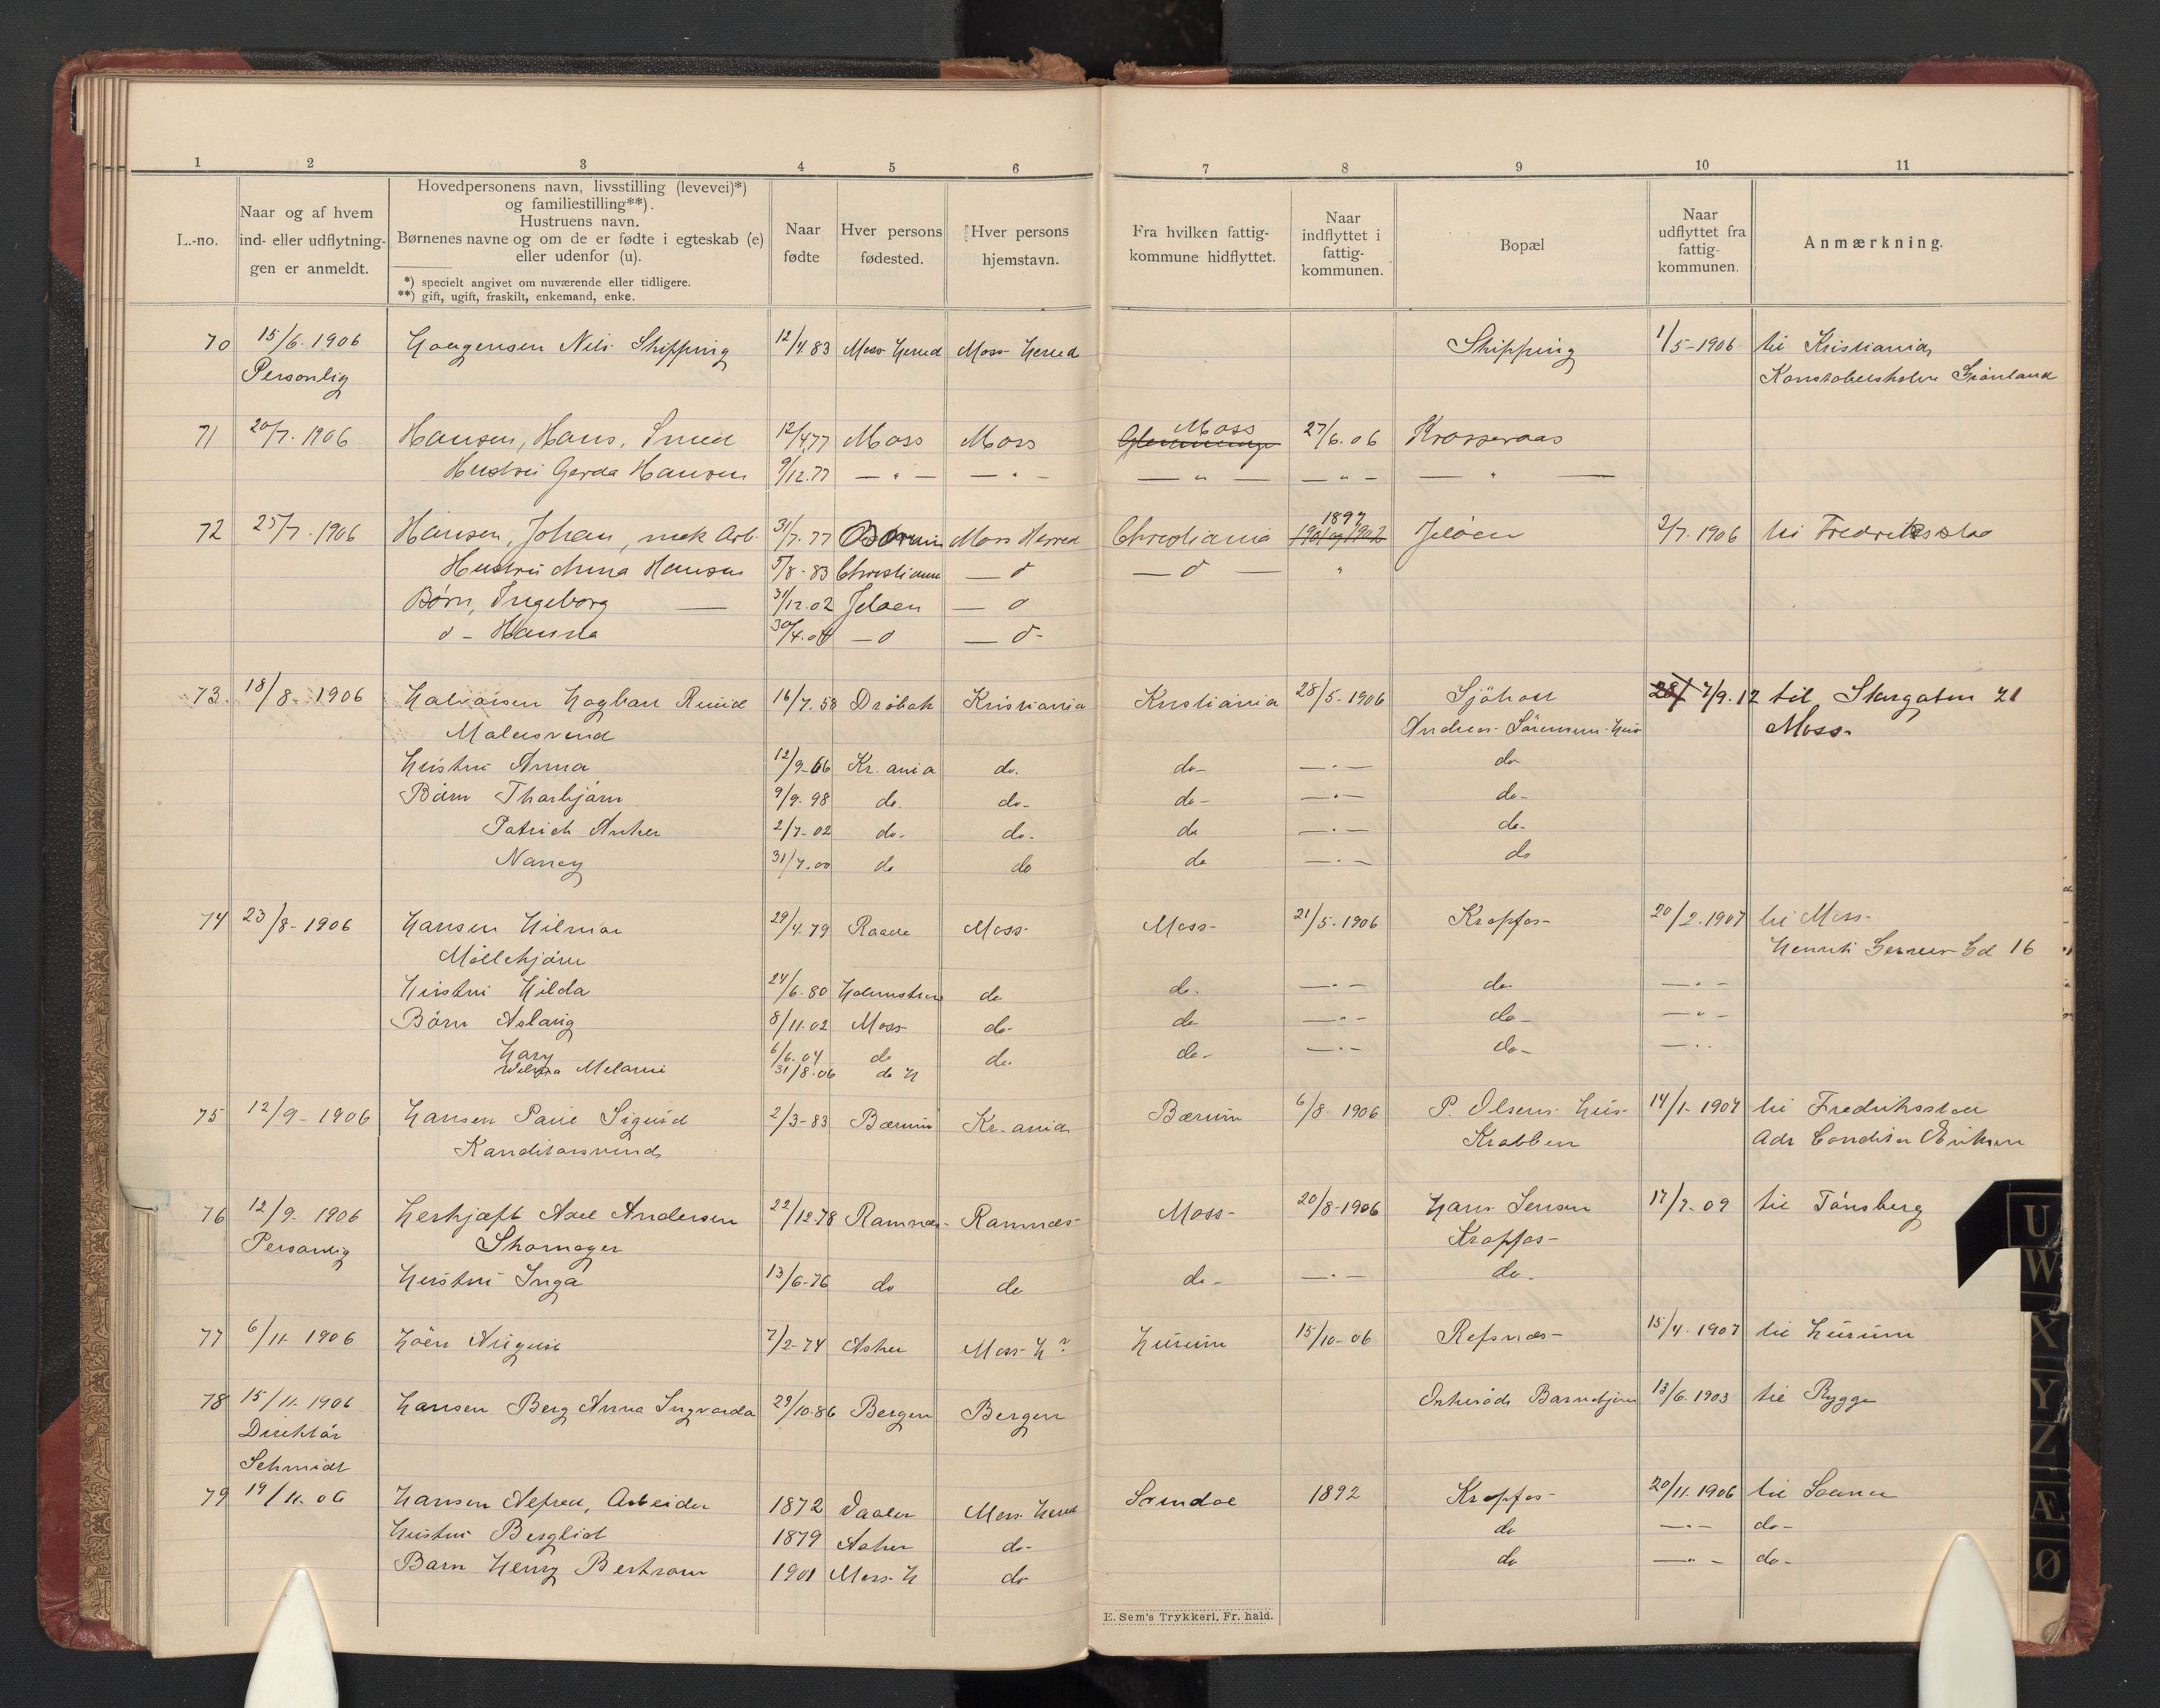 1 2 3 4 5 6 7 8 9 10 11
L.-no.
Naar og af hvem
ind- eller udflytnin-
gen er anmeldt.
Hovedpersonens navn, livsstilling (levevei)*)
og familiestilling**).
Hustruens navn.
Børnenes navne og om de er fødte i egteskab (e)
eller udenfor (u).
*) specielt angivet om nuværende eller tidligere.
**) gift, ugift, fraskilt, enkemand, enke.
Naar
fødte
Hver persons
fødested.
Hver persons
hjemstavn.
Fra hvilken fattig-
kommune hidflyttet.
Naar
indflyttet i
fattig-
kommunen.
Bopæl
Naar
udflyttet fra
fattig-
kommunen.
Anmærkning.
70 15/6. 1906 Haagensen Nils Skipping 12/4 83 Moss Herred Moss Herred Skipping 1/5-1906 til Kristiania
Personlig Grønland
71 20/7. 1906 Hansen, Hans, Smed 12/4 77 Moss Moss Moss 27/6.06 Krosseraas
Hustru Gerda Hansen 9/12.77 — " — — " — — " — — " — — " —
72 25/7. 1906 Hansen, Johan, mek Arb. 31/7.77 Moss Herred Christiania 1897 1901 og 1902 Jeløen 2/7. 1906 til Fredriksstad
Hustru Anna Hansen 5/8-83 Christiania — d — d — "
Børn, Ingeborg — 31/12.02 Jeløen — d
d - 30/4.04 — d — d -
73. 18/8-1906 Halvorsen Hagbart 16/7.58 Drøbak Kristiania Kristiania 28/5-1906 Sjøholt 28/ 7/9.12 til Storgaten 21
Malersvend Andreas Sørensens Hus Moss.
Hustru Anna 12/9-66 Kr.ania do. do- — " — do
Børn Thorbjørn 9/9.98 do. do- do- — " — do-
Patrick Anker 2/7-02 do. do. do — " — do-
Nancy 31/7.00 do do do — " — do
74 23/8-1906 Hansen Hilmar 29/4.79 Raade Moss Moss- 21/5-1906 Kropfos- 20/2.1907 til Moss-
Møllebjørn Henrik Gd 16
Hustru Hilda 24/6-80 Holmestrand do do. — " — do — " —
Børn Aslaug 8/11.02 Moss do- do — " — do- — " —
Hary 6/6.04 do do. do- — " — do- — " —
Melanie 31/8.06 do H
75 12/9-1906 Hansen Paul Sigurd 2/3-83 Bærum Kr.ania Bærum 6/8 1906 P. Olsens Hus 14/1-1907 til Fredriksstad
Kanditorsvend Krabben Adr Conditor Eriksen
76 12/9. 1906 Axel Andersen 22/12-78 Ramnæs- Ramnæs- Moss- 20/8-1906 Hans Jensen 17/7-09 til Tønsberg
Personlig Skomager Kropfos-
Hustru Inga 13/6-76 do do do- — " — do-
77 6/11 1906 Høen August 7/2-74 Asker Moss H? Hurum 15/10-06 Refsnæs- 15/4.1907 til Hurum
78 15/11 1906 Hansen Berg Anna Ingvarda 29/10.86 Bergen Bergen Orkerød Barnehjem 13/6.1903 til Rygge
Direktør
Schmidt
79 19/11.06 Hansen Alfred, Arbeider 1872 Vaaler Moss Herred 1892 Kropfos- 20/11.1906 til Sooner
Hustru Bergliot 1879 Asker do- do — " — do-
Barn Henry Bertram 1901 Moss H do do — " — do-
E. Sem's Trykkeri, Fr. hald.
U
W
X
Y
Z
Æ
Ø